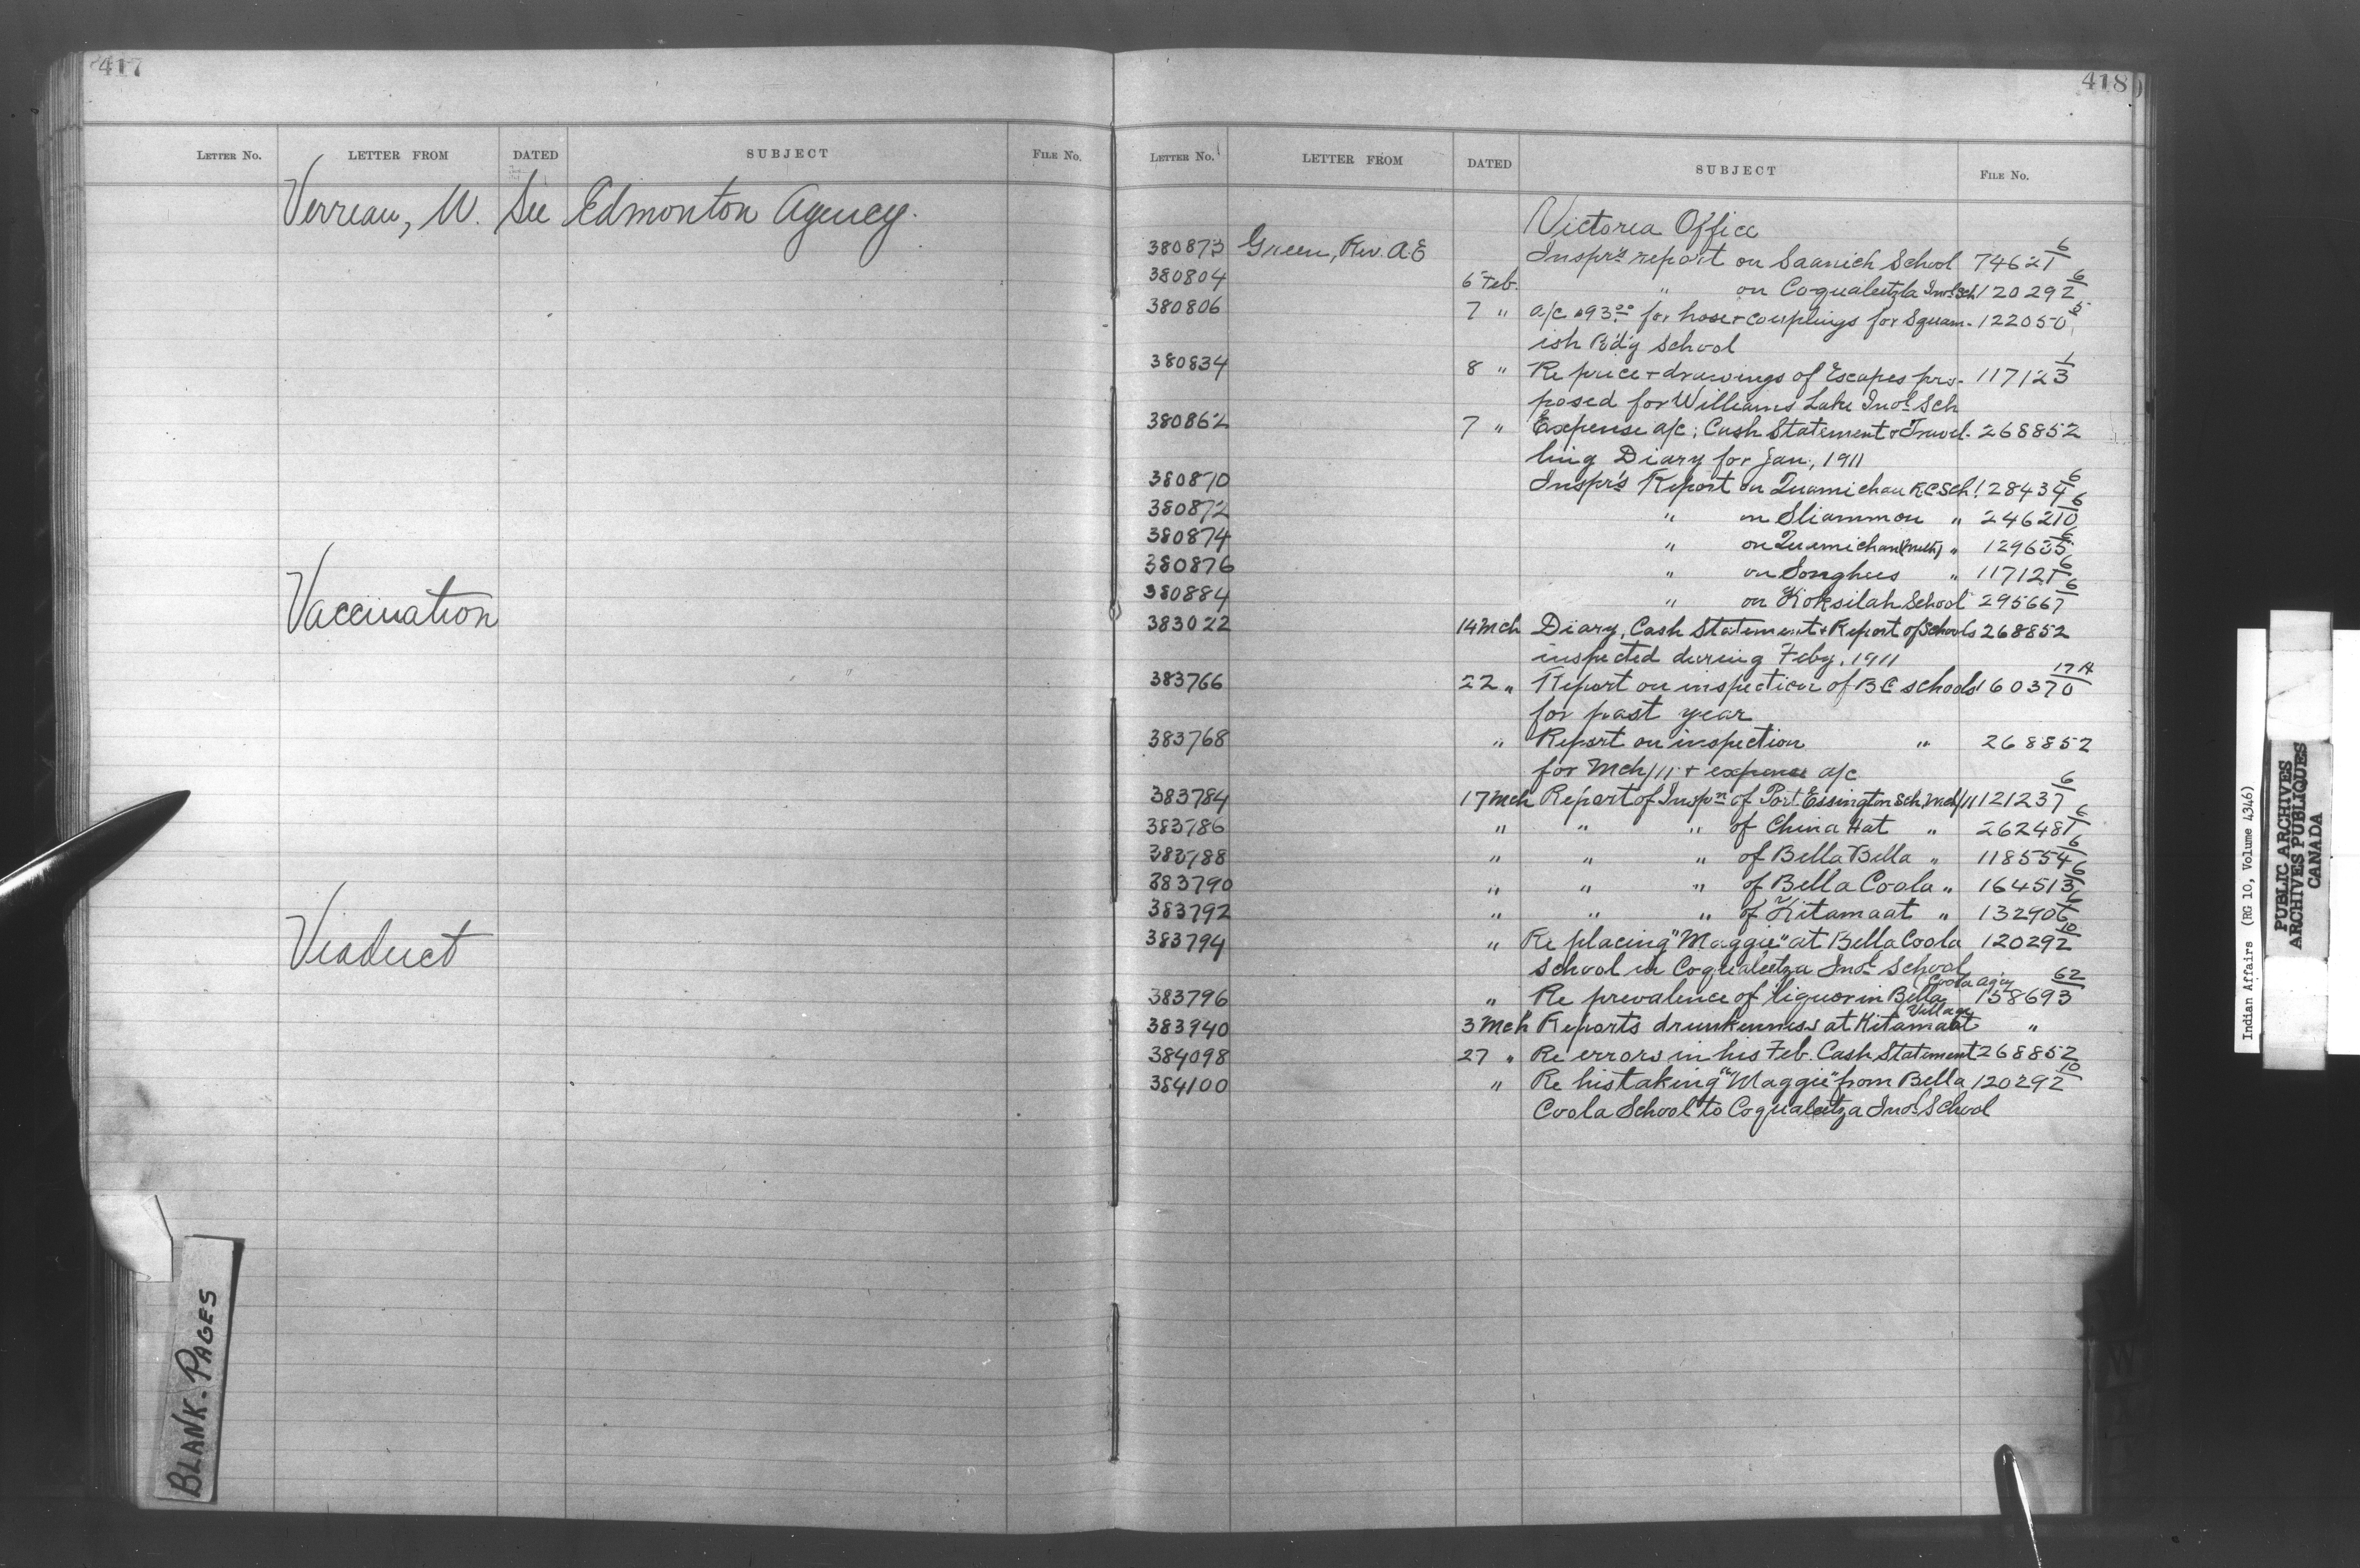 417
LETTER No. LETTER FROM DATED SUBJECT FILE No.
Verreau, W. See Edmonton Agency.
Vaccination
Viaduct
BLANK-PAGES
418
LETTER No. LETTER FROM DATED SUBJECT FILE No.
Victoria Office
380873 Green, Rev. A.E Inspr's report on Saanich School 74621 6
380804 6 Feb. " on Coqualeetza Indl Sch 120292 6
380806 7 " a/c $93.00 for hose + couplings for Squam- 122050 5
ish B'd'g School
380834 8 " Re price + drawings of Escapes pro- 117123 1
posed for Williams Lake Indl Sch
380862 7 " Expense a/c; Cash Statement & Travel- 268852
ling Diary for Jan., 1911
380870 Inspr's Report on Quamichan R.C. Sch. 128434 6
380872 " on Sliammon " 246210 6
380874 " on Quamichan (Meth) " 129635 6
380876 " on Songhees " 117121 6
380884 " on Koksilah School 295667 6
383022 14 Mch Diary, Cash Statement & Report of Schools 268852
inspected during Feby. 1911
383766 22 " Report on inspection of BC schools 160370 17A
for past year
383768 " Report on inspection " 268852
for Mch/11 + expense a/c
383784 17 Mch Report of Inspn of Port Essington Sch, Mch/11 121237 6
383786 " " " of China Hat " 262481 6
383788 " " " of Bella Bella " 118554 6
383790 " " " of Bella Coola " 164513 6
383792 " " " of Kitamaat " 132906 6
383794 " Re placing "Maggie" at Bella Coola 120292 10
School in Coqualeetza Indl School
383796 " Re prevalence of liquor in Bella (Coola Agcy 158693 62
383940 3 Mch Reports drunkenness at Kitamaat Village "
384098 27 " Re errors in his Feb. Cash Statement 268852
384100 " Re his taking "Maggie" from Bella 120292 10
Coola School to Coqualeetza Indl School
Indian Affairs (RG 10, Volume 4346)
PUBLIC ARCHIVES
ARCHIVES PUBLIQUES
CANADA